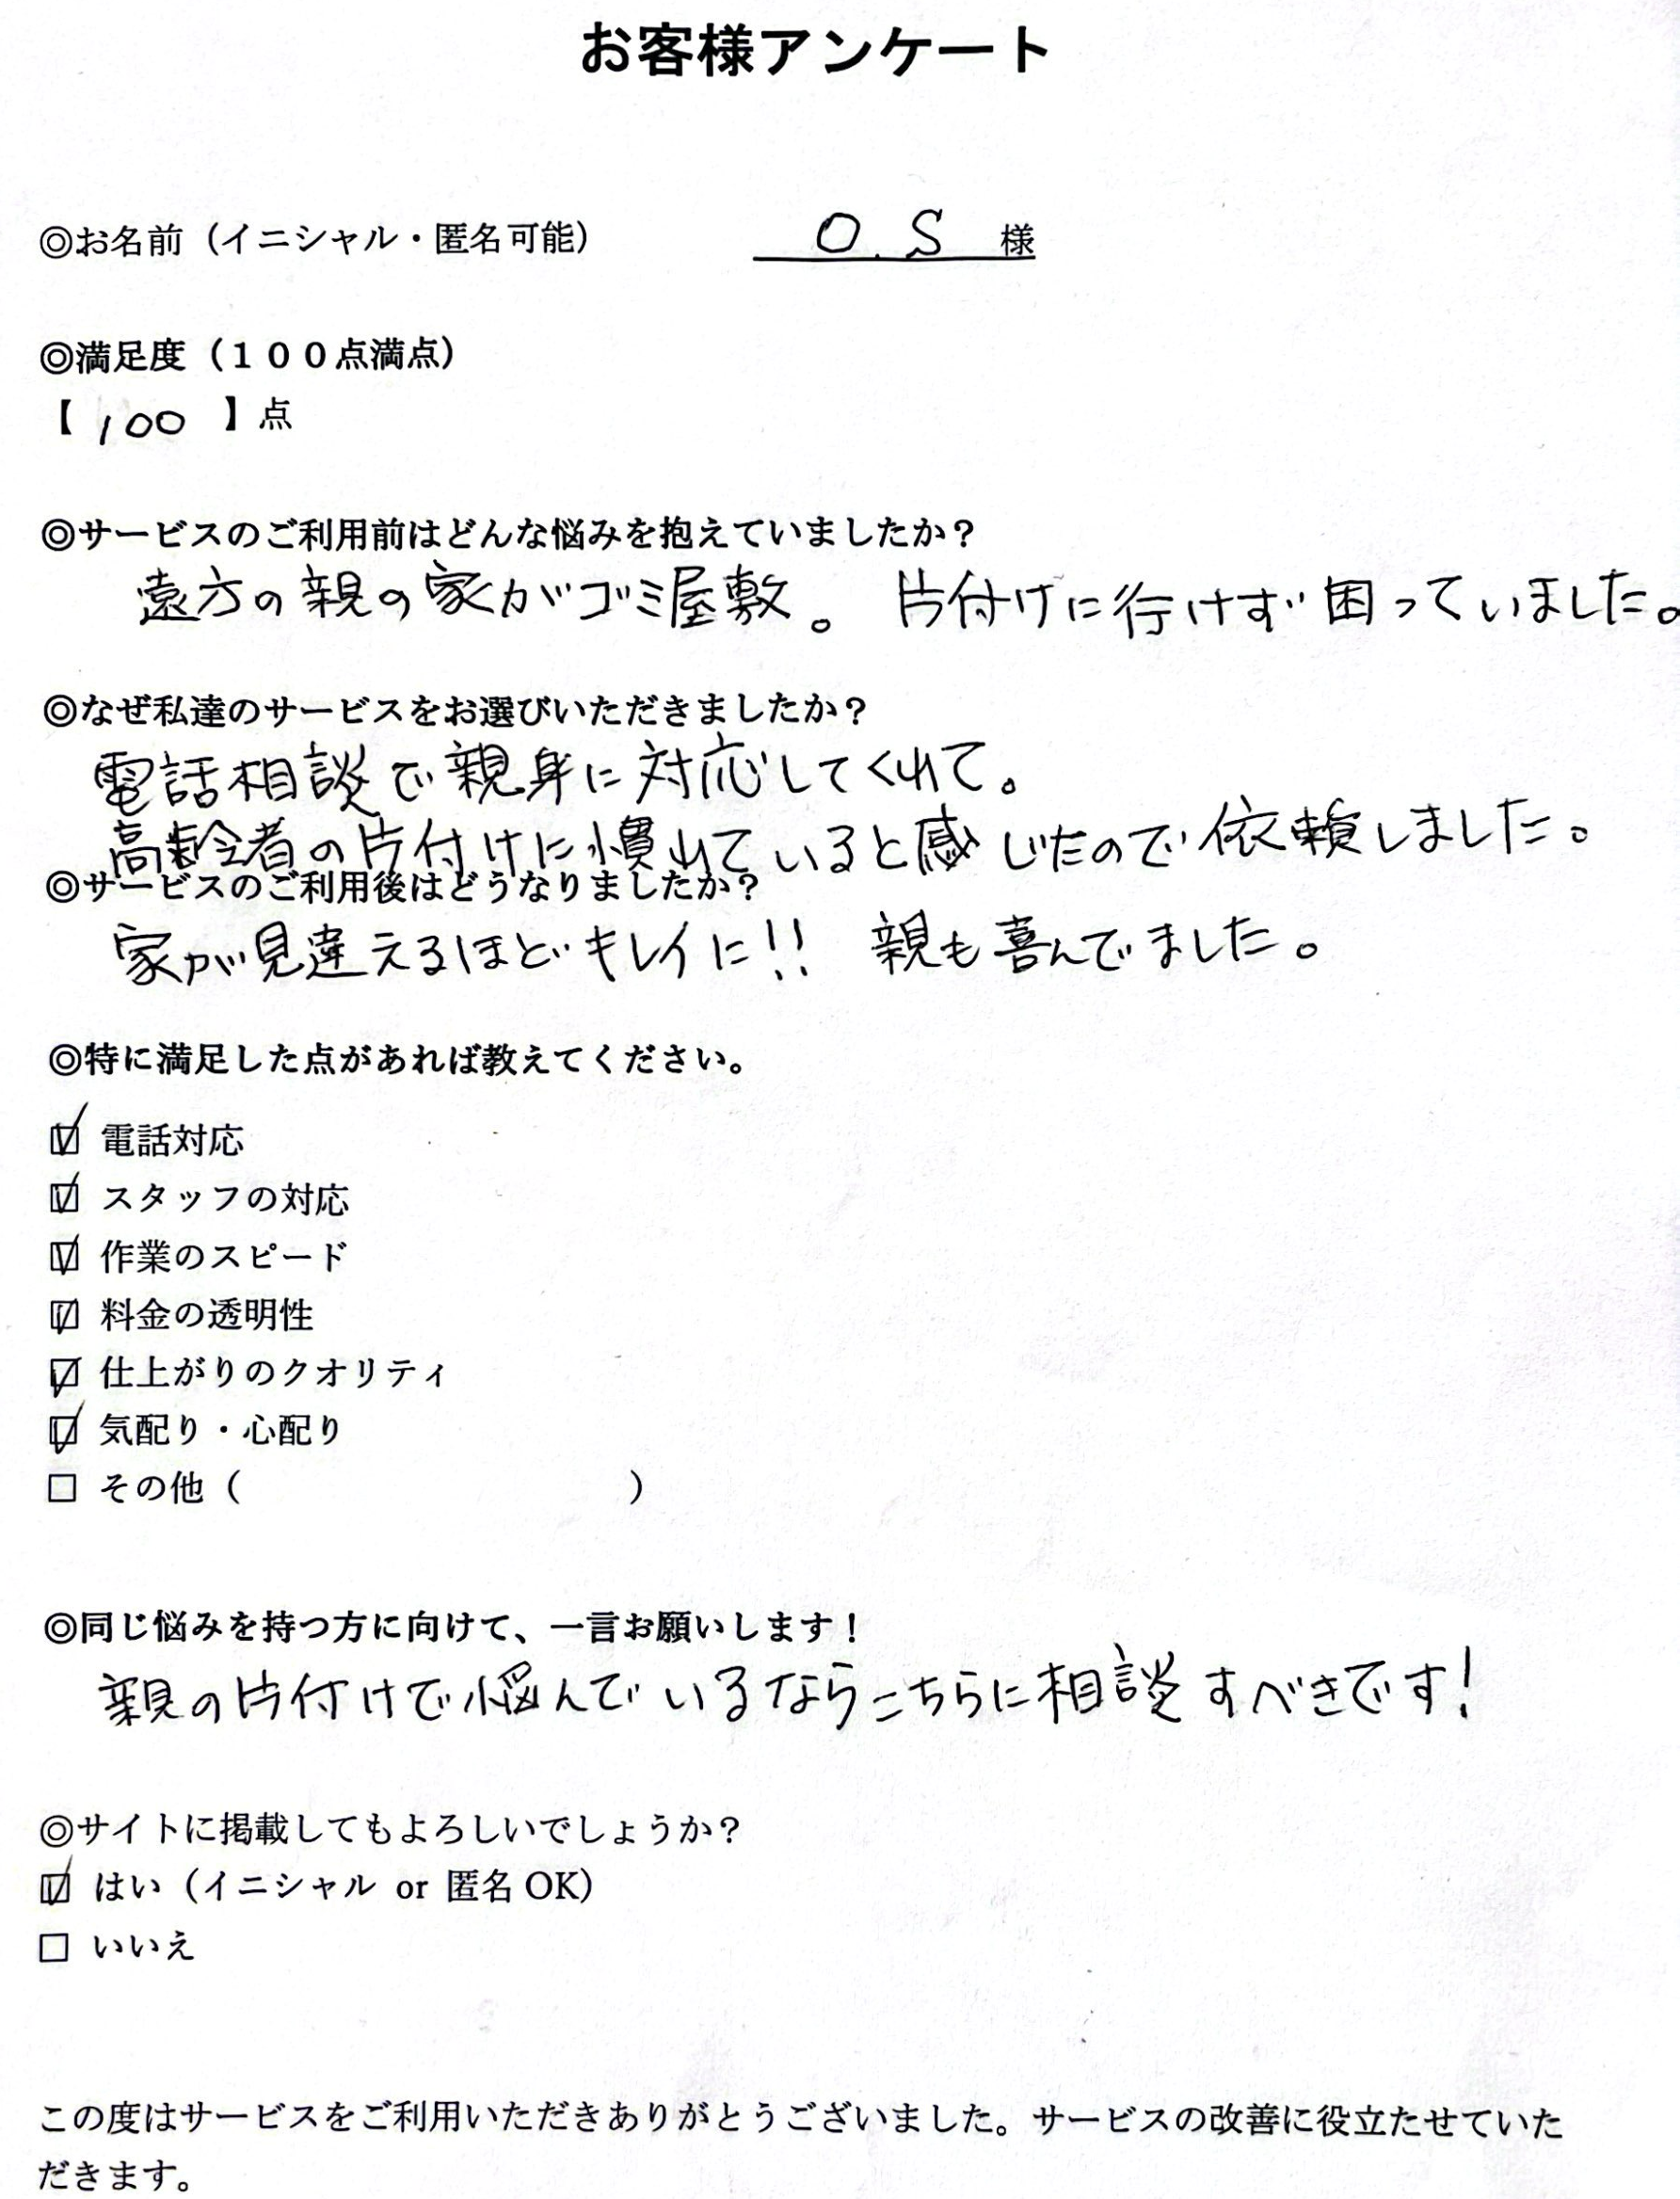 お客様アンケート
◎お名前（イニシャル・匿名可能） O.S 様
◎満足度（１００点満点）
【 100 】点
◎サービスのご利用前はどんな悩みを抱えていましたか？
遠方の親の家がゴミ屋敷。 片付けに行けず困っていました。
◎なぜ私達のサービスをお選びいただきましたか？
電話相談で親身に対応してくれて。
高齢者の片付けに慣れていると感じたので依頼しました。
◎サービスのご利用後はどうなりましたか？
家が見違えるほどキレイに!! 親も喜んでました。
◎特に満足した点があれば教えてください。
☑ 電話対応
☑ スタッフの対応
☑ 作業のスピード
☑ 料金の透明性
☑ 仕上がりのクオリティ
☑ 気配り・心配り
☐ その他（ ）
◎同じ悩みを持つ方に向けて、一言お願いします！
親の片付けで悩んでいるならこちらに相談すべきです!
◎サイトに掲載してもよろしいでしょうか？
☑ はい（イニシャル or 匿名 OK）
☐ いいえ
この度はサービスをご利用いただきありがとうございました。サービスの改善に役立たせていた
だきます。